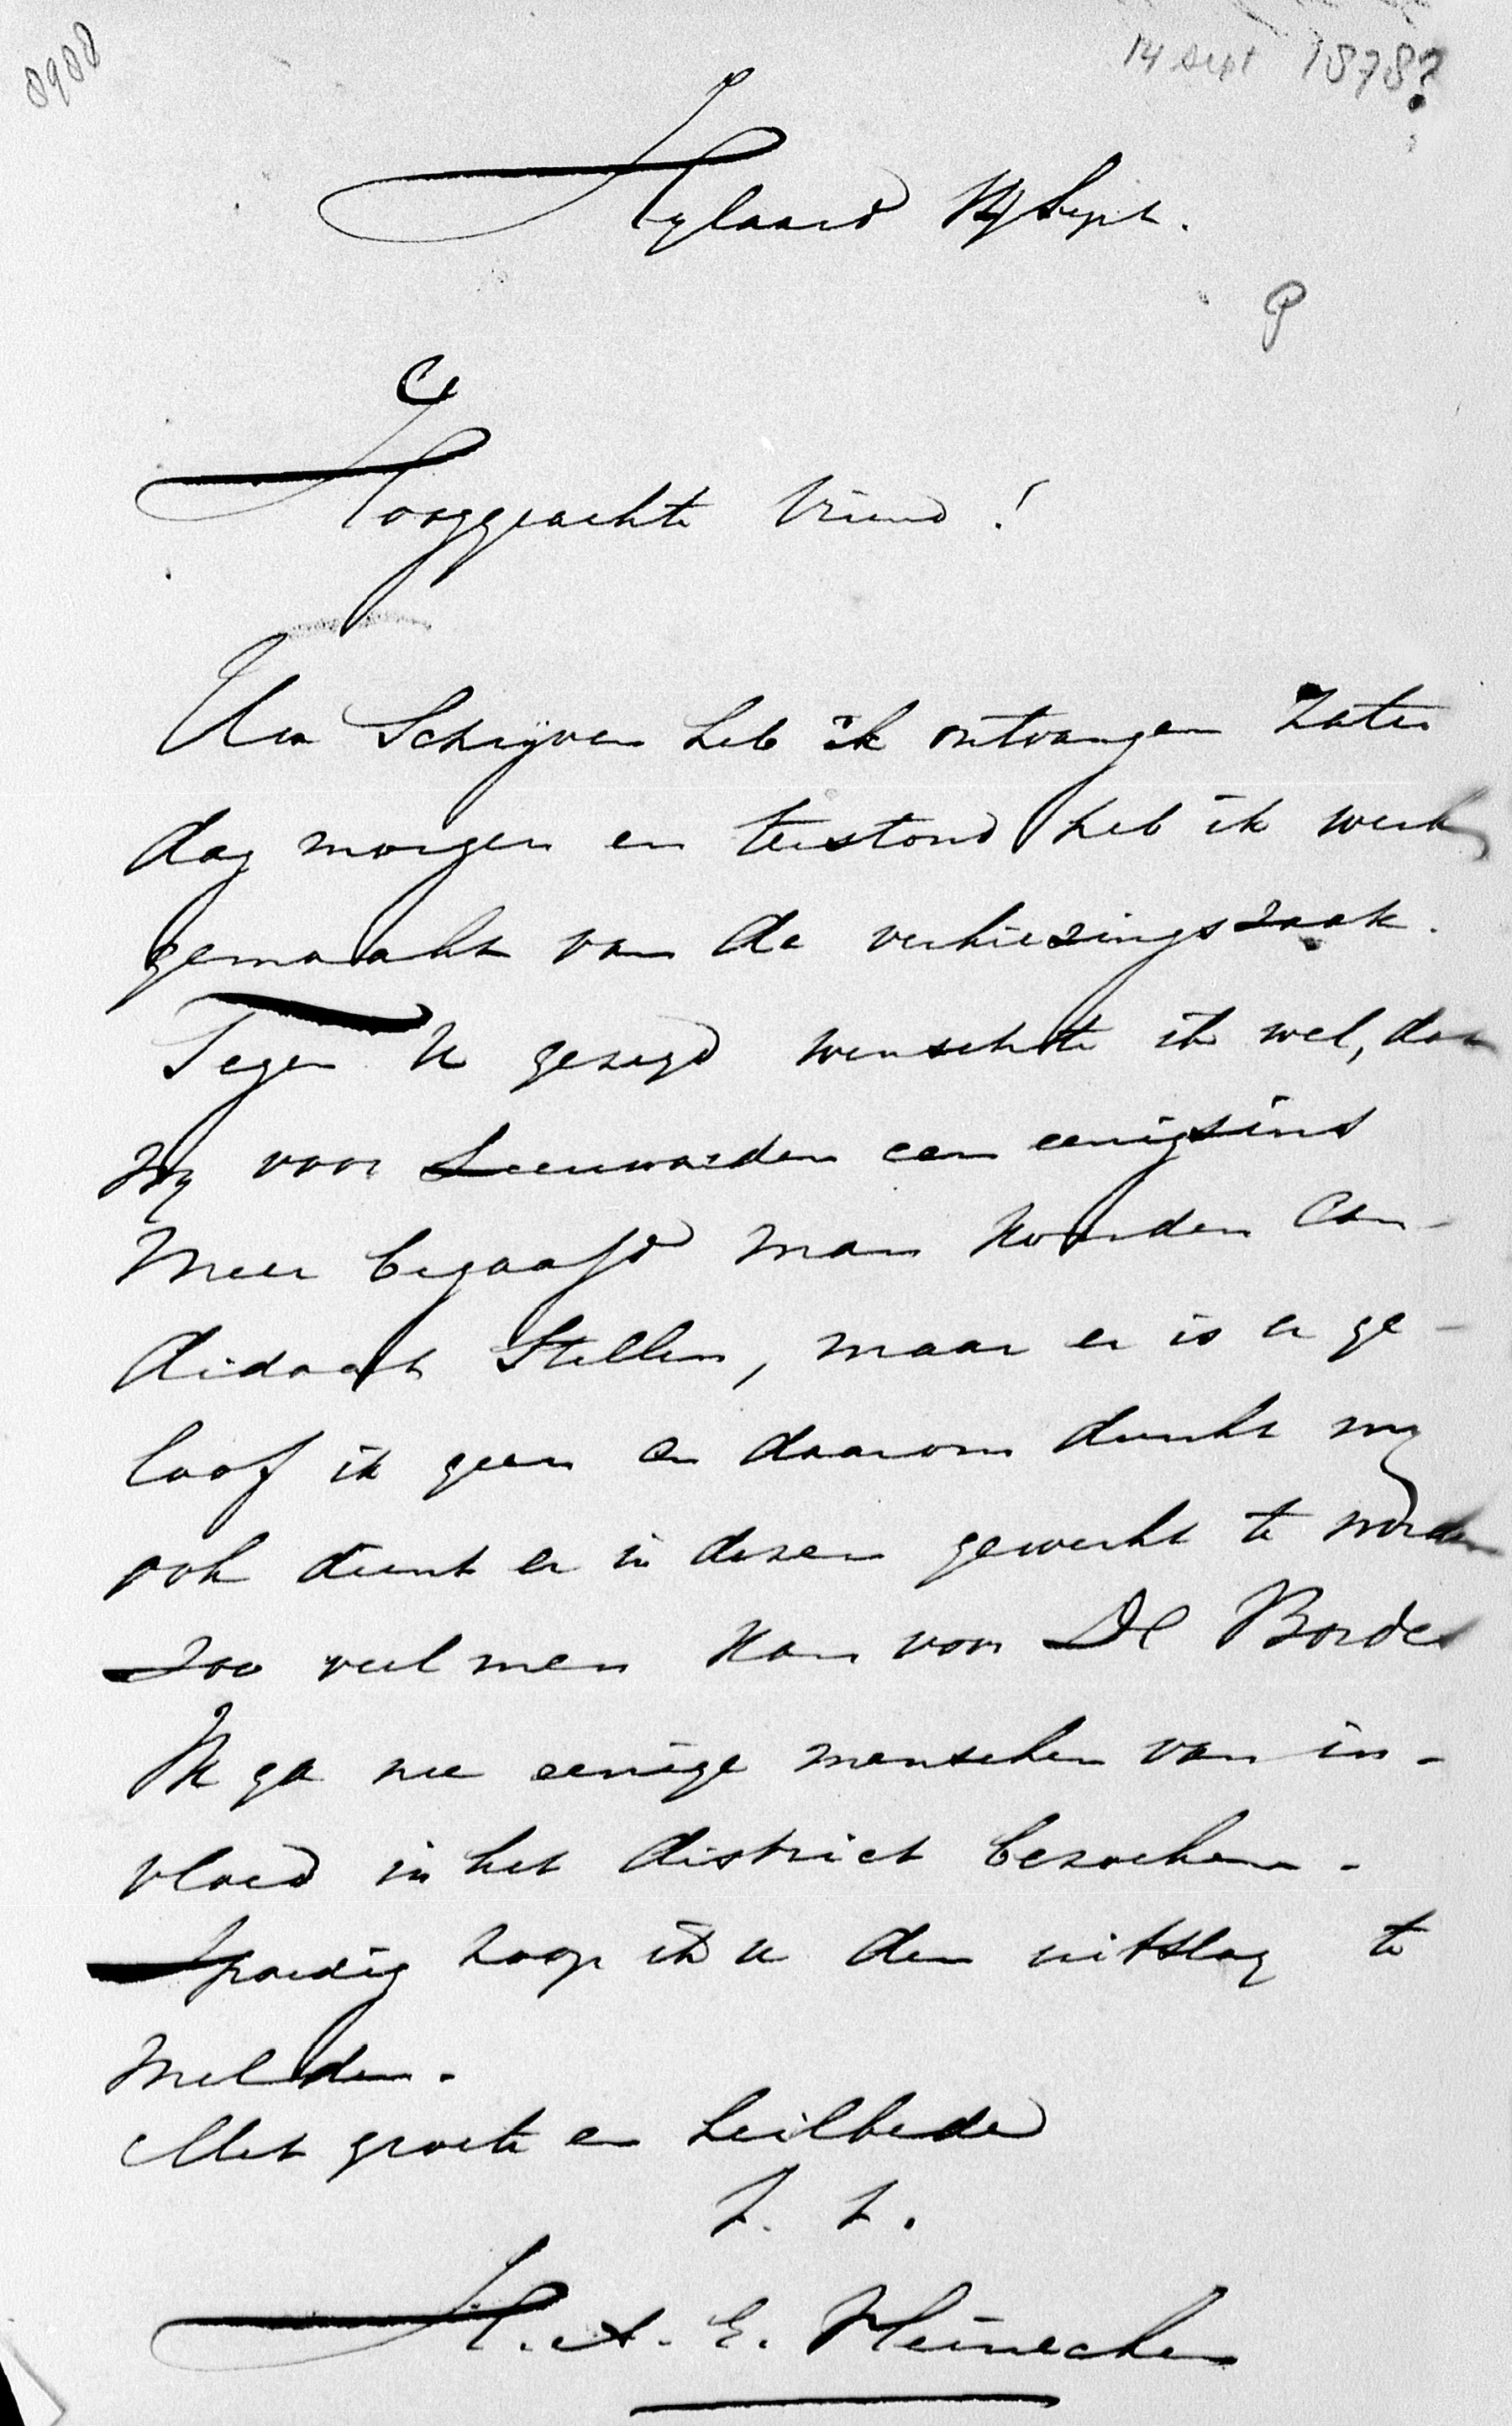 8988
14 sept 1878?
Hylaard 14 Sept.
Hooggeachte Vriend!
Uw Schrijven heb ik ontvangen Zater
dag morgen en terstond heb ik werk
gemaakt van de verkiezingszaak.
Tegen U gezegd wenschte ik wel, dat
wij voor Leeuwarden een eenigsins
meer begaafd man konden Can-
didaat Stellen, maar er is er ge-
loof ik geen en daarom dunkt mij
ook dient er in dezen gewerkt te worden
zoo veel men kan voor De Bordes
Ik ga nu eenige menschen van in-
vloed in het district bezoeken.
Spoedig hoop ik u den uitslag te
melden.
Met groete en heilbede
t. t.
H. A. E. Meinecken